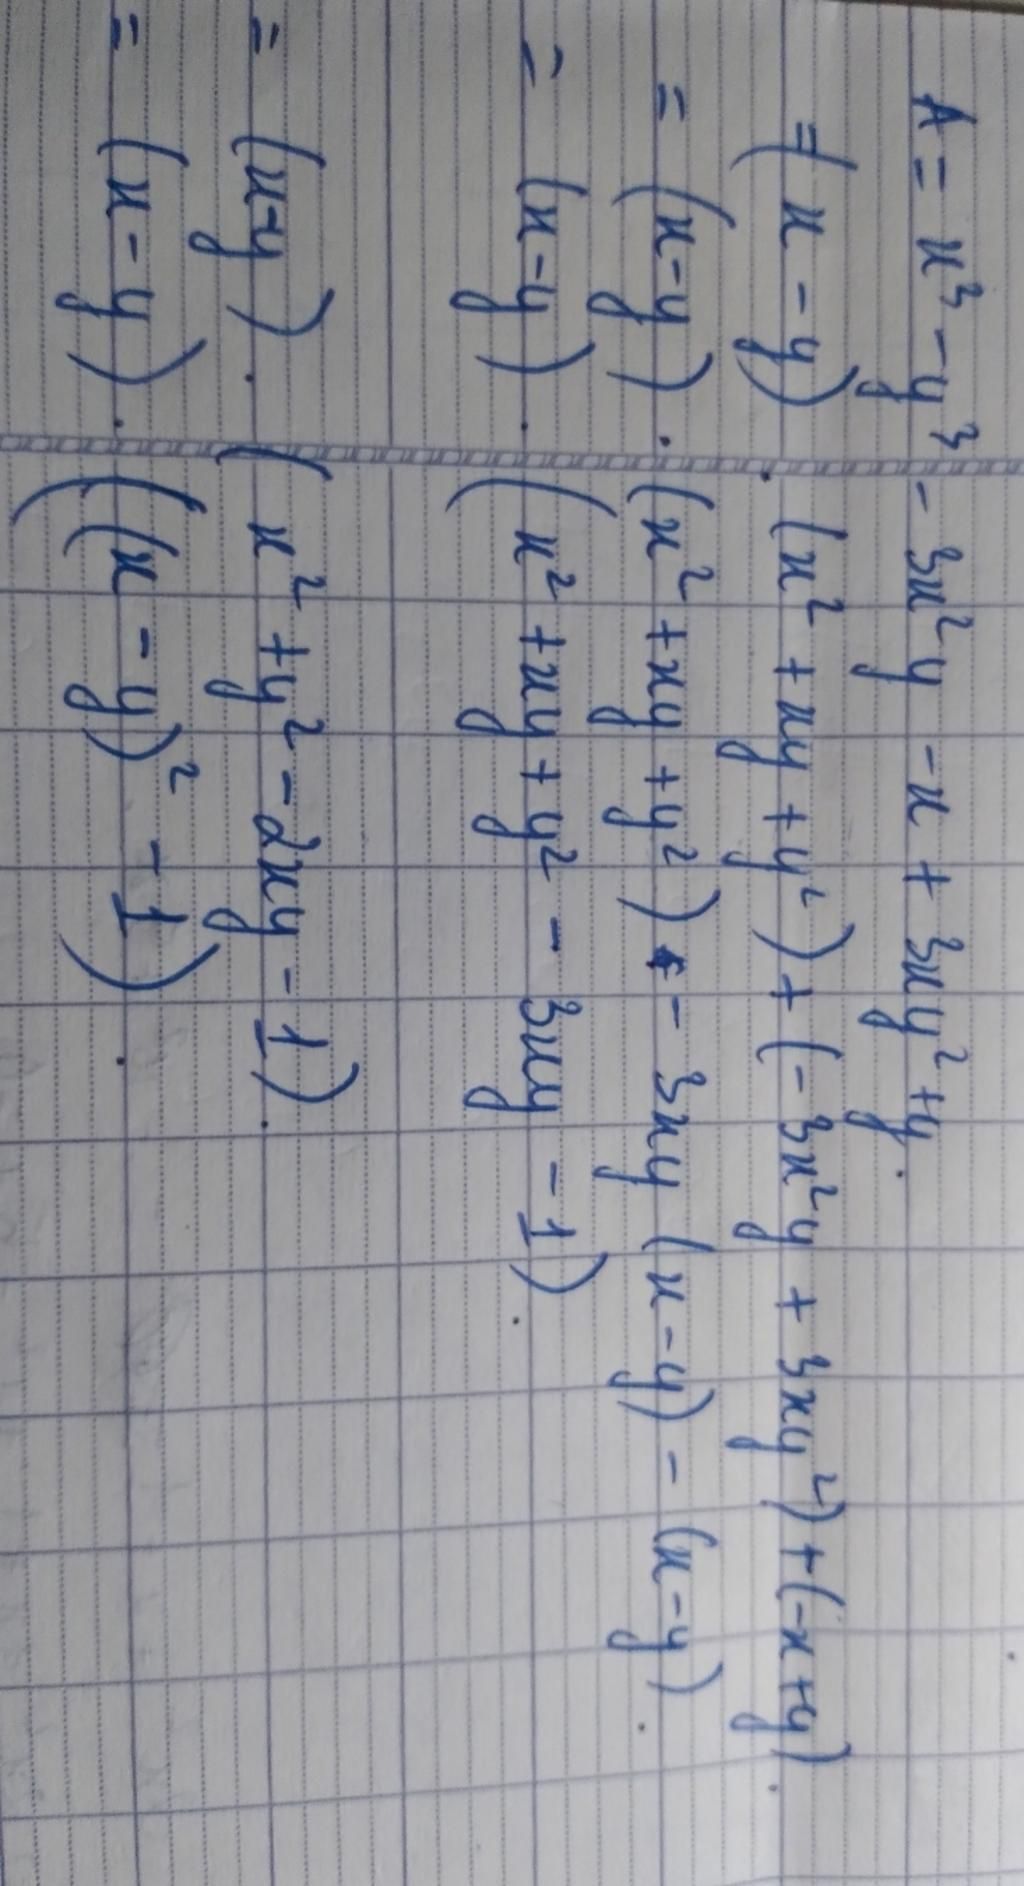 A = x³ - y³ - 3x²y - x + 3xy² + y.
= (x - y) . (x² + xy + y²) + (- 3x²y + 3xy²) + (-x + y) .
= (x - y) . (x² + xy + y²) - 3xy (x - y) - (x - y) .
= (x - y) . (x² + xy + y² - 3xy - 1) .
= (x - y) . (x² + y² - 2xy - 1) .
= (x - y) . ((x - y)² - 1) .